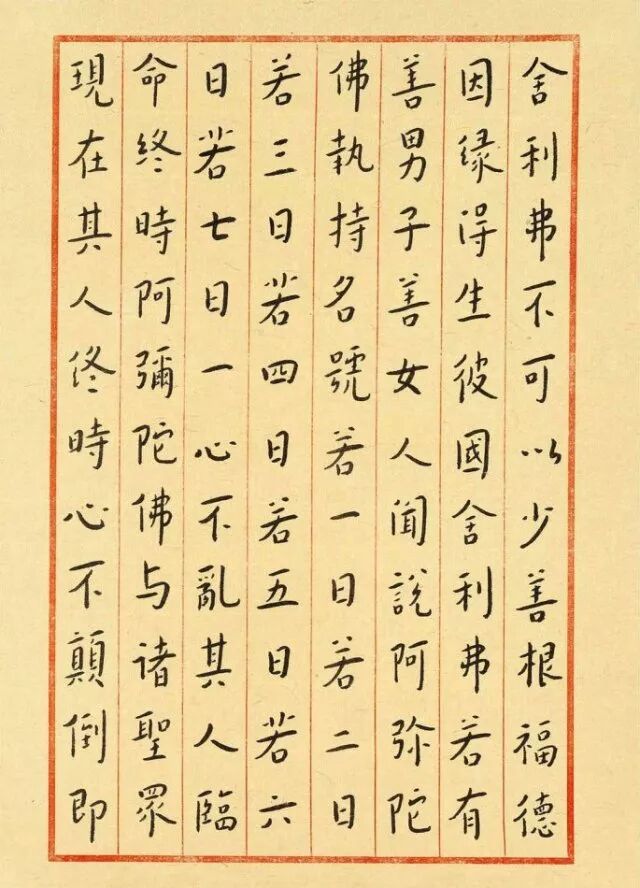 舍利弗不可以少善根福德
因缘得生彼國舍利弗若有
善男子善女人闻説阿弥陀
佛執持名號若一日若二日
若三日若四日若五日若六
日若七日一心不亂其人臨
命終時阿彌陀佛与诸聖眾
現在其人終時心不顛倒即